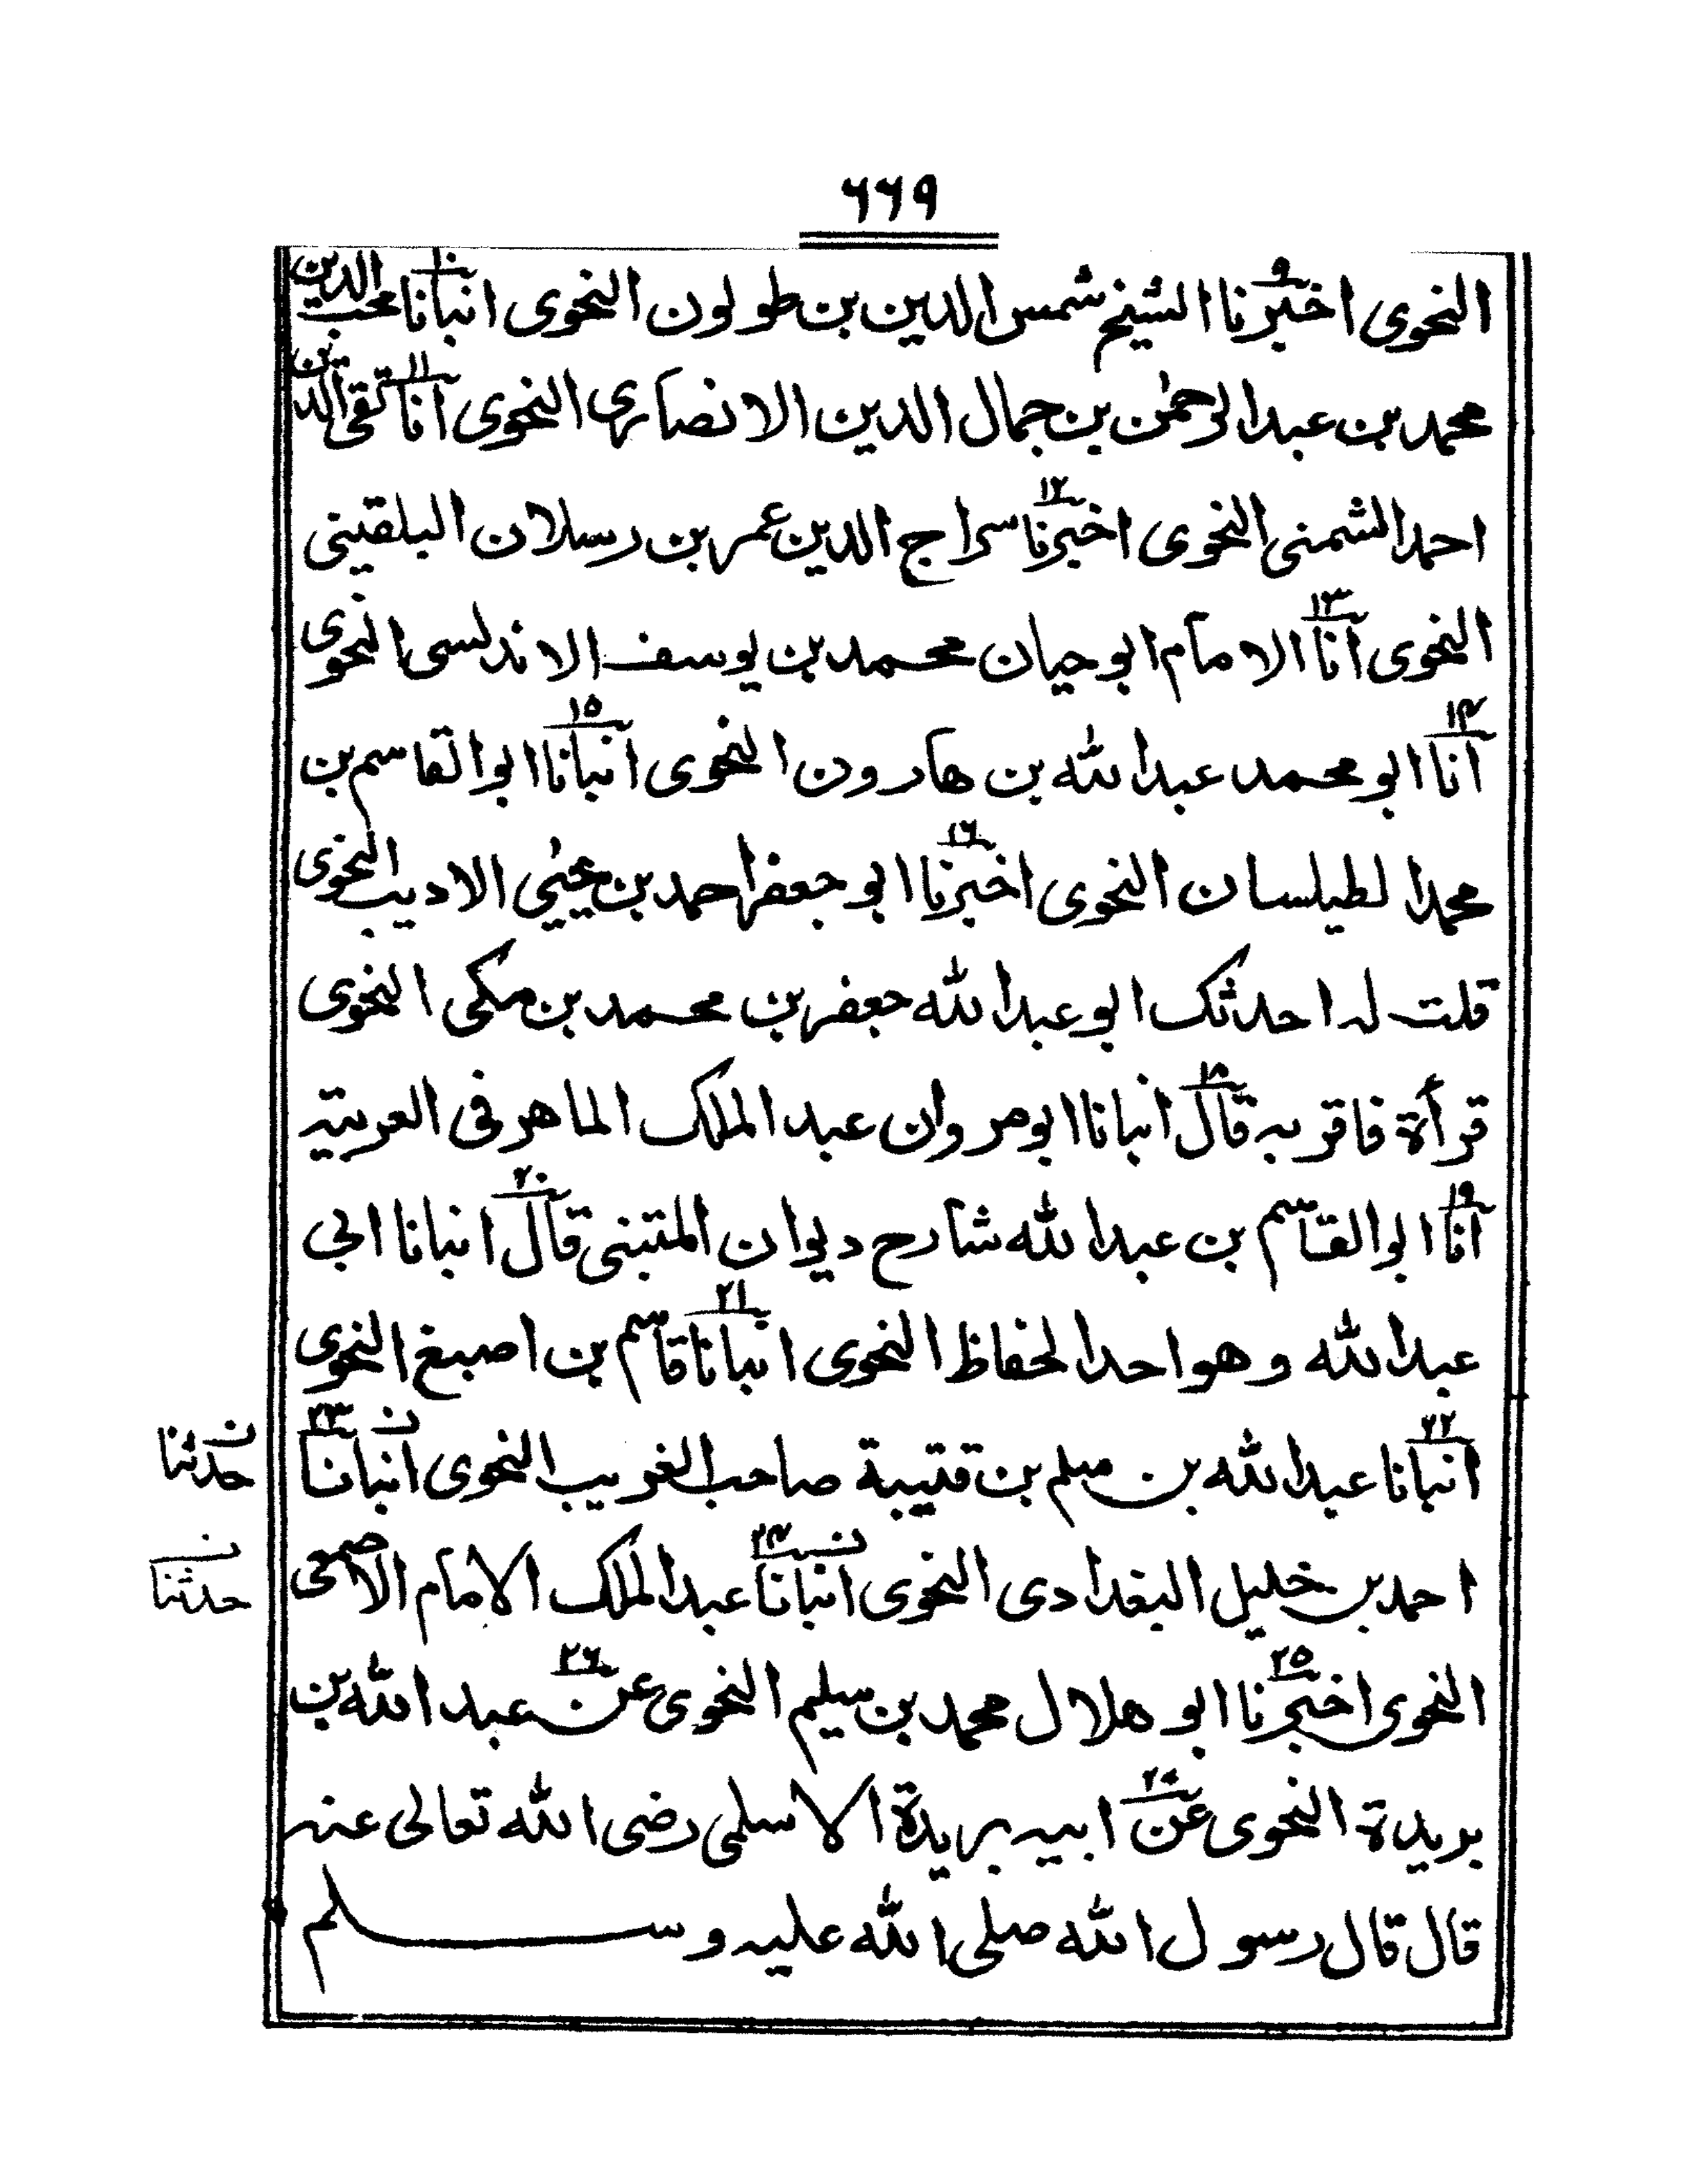 ۶۶۹
النحوى اخبرنا۹ الشيخ شمس الدين بن طولون النحوى انبانا۱۰ محب الدين
محمد بن عبد الرحمٰن بن جمال الدين الانصارى النحوى انا۱۱ تقى الدين
احمد الشمنى النحوى اخبرنا۱۲ سراج الدين عمر بن رسلان البلقينى
النحوى انا۱۳ الامام ابو حيان محمد بن يوسف الاندلسى النحوى
انا۱۴ ابو محمد عبد الله بن هارون النحوى انبانا۱۵ ابو القاسم بن
محمد الطيلسان النحوى اخبرنا۱۶ ابو جعفر احمد بن يحيٰى الاديب النحوى
قلت له احدثك ابو عبد الله جعفر بن محمد بن مكى النحوى
قرأة فاقر به قال۱۸ انبانا ابو مروان عبد الملك الماهر فى العربية
انا۱۹ ابو القاسم بن عبد الله شارح ديوان المتنبى قال۲۰ انبانا ابى
عبد الله وهو احد الحفاظ النحوى انبانا۲۱ قاسم بن اصبغ النحوى
انبانا۲۲ عبد الله بن مسلم بن قتيبة صاحب الغريب النحوى انبانا۲۳ ن
ن حدثنا
احمد بن خليل البغدادى النحوى انبانا۲۴ ن عبد الملك الامام الاصمعى
ن حدثنا
النحوى اخبرنا۲۵ ابو هلال محمد بن سليم النحوى عن۲۶ عبد الله بن
بريدة النحوى عن۲۷ ابيه بريدة الاسلمى رضى الله تعالى عنه
قال قال رسول الله صلى الله عليه وسلم